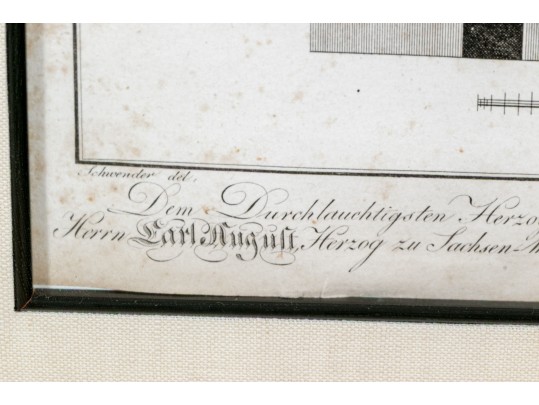 Schwender del.
Dem Durchlauchtigsten Herzo
Herrn Carl August, Herzog zu Sachsen-